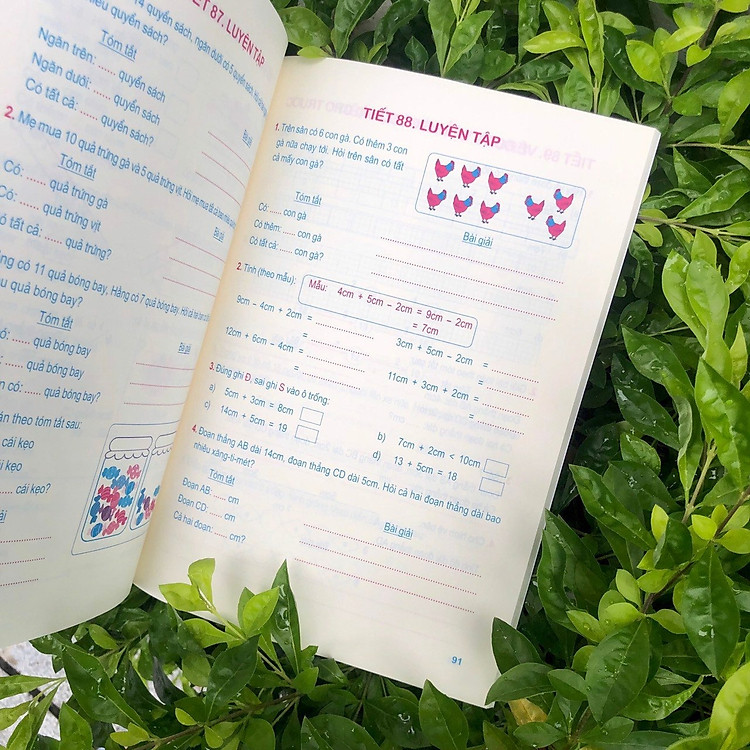 TIẾT 87. LUYỆN TẬP
quyển sách, ngăn dưới có 5 quyển sách.
quyển sách?
Tóm tắt
Ngăn trên: ...... quyển sách
Ngăn dưới: ...... quyển sách
Có tất cả: ...... quyển sách?
Bài giải
2. Mẹ mua 10 quả trứng gà và 5 quả trứng vịt. Hỏi mẹ mua tất cả bao nhiêu
Tóm tắt
Có: ...... quả trứng gà
Có: ...... quả trứng vịt
Có tất cả: ...... quả trứng?
Bài giải
có 11 quả bóng bay, Hằng có 7 quả bóng bay. Hỏi cả hai bạn
quả bóng bay?
Tóm tắt
...... quả bóng bay
...... quả bóng bay
có: ...... quả bóng bay?
Bài giải
theo tóm tắt sau:
cái kẹo
cái kẹo
...... cái kẹo?
giải
TIẾT 88. LUYỆN TẬP
1. Trên sân có 6 con gà. Có thêm 3 con
gà nữa chạy tới. Hỏi trên sân có tất
cả mấy con gà?
Tóm tắt
Có: ...... con gà
Có thêm: ...... con gà
Có tất cả: ...... con gà?
Bài giải
2. Tính (theo mẫu):
Mẫu: 4cm + 5cm – 2cm = 9cm – 2cm
= 7cm
9cm – 4cm + 2cm = ............
= ............
3cm + 5cm – 2cm = ............
= ............
12cm + 6cm – 4cm = ............
= ............
11cm + 3cm + 2cm = ............
= ............
3. Đúng ghi Đ, sai ghi S vào ô trống:
a) 5cm + 3cm = 8cm
b) 7cm + 2cm < 10cm
c) 14cm + 5cm = 19
d) 13 + 5cm = 18
4. Đoạn thẳng AB dài 14cm, đoạn thẳng CD dài 5cm. Hỏi cả hai đoạn thẳng dài bao
nhiêu xăng-ti-mét?
Tóm tắt
Đoạn AB: ...... cm
Đoạn CD: ...... cm
Cả hai đoạn: ...... cm?
Bài giải
91